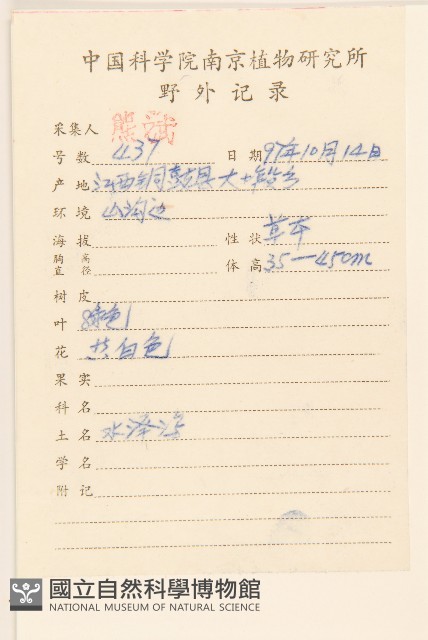 中国科学院南京植物研究所
野外记录
采集人 熊
号数 437 日期 97年10月14日
产地 江西铜鼓县大
环境 山沟边
海拔 性状 草本
胸高直径 体高 35—450m
树皮
叶 绿色
花 白色
果实
科名
土名 水泽兰
学名
附记
國立自然科學博物館
NATIONAL MUSEUM OF NATURAL SCIENCE